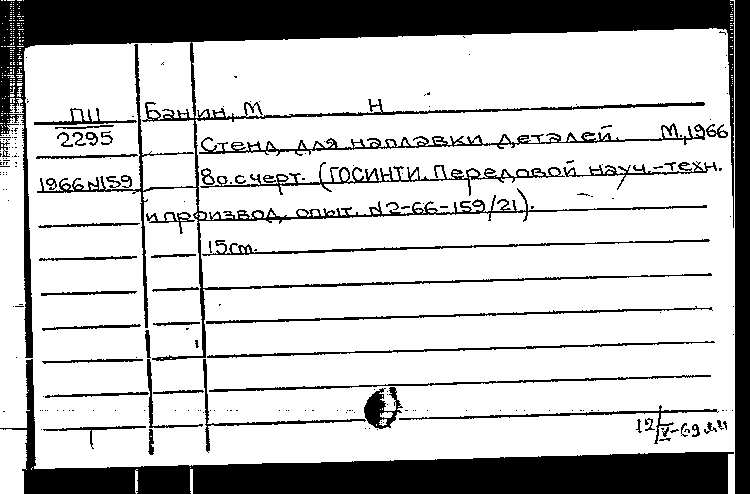 ПЦ Банин, М Н
2295 Стенд для наплавки деталей. М., 1966
1966 №159 8с. с черт. (ГОСИНТИ. Передовой науч.-техн.
и производ. опыт. №2-66-159/21).
15 см.
12/V-69